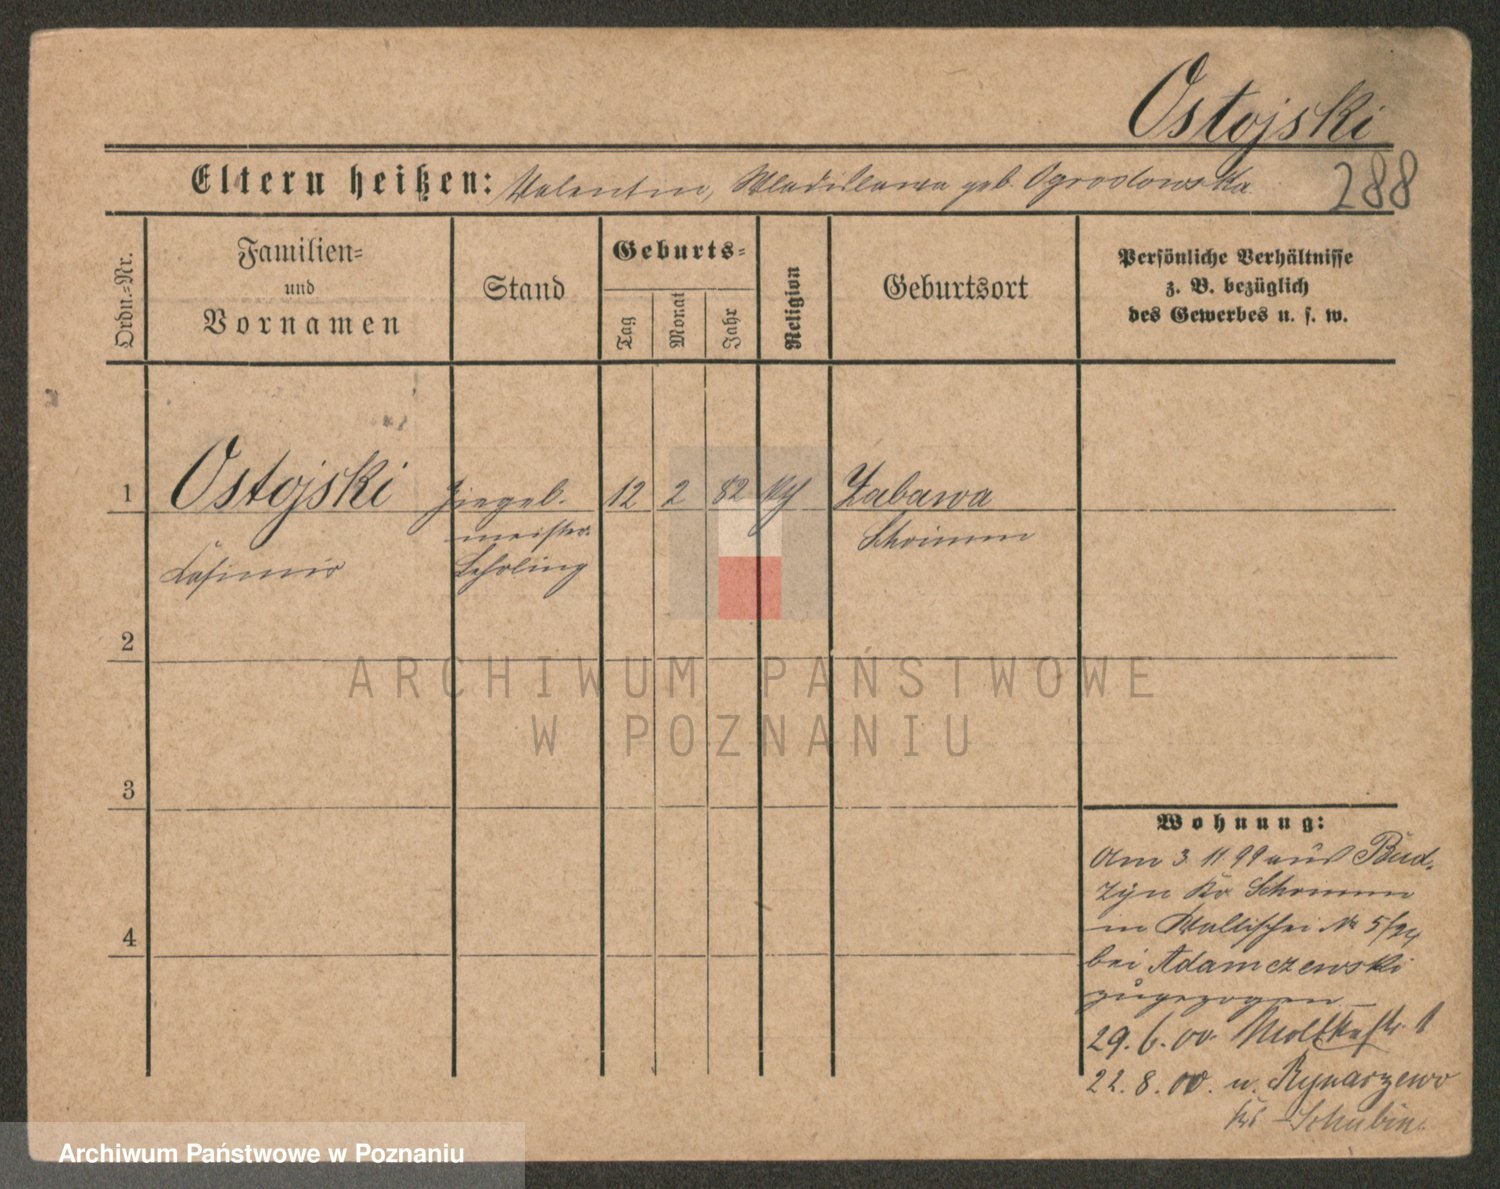 Ostojski
288
Eltern heißen: Valentin, Wladislawa geb. Ogrodowska
Ordn.-Nr.
Familien-
und
Vornamen
Stand
Geburts-
Tag
Monat
Jahr
Religion
Geburtsort
Persönliche Verhältnisse
z. B. bezüglich
des Gewerbes u. s. w.
1 Ostojski Ziegel- 12 2 82 kth Zabawa
meister Schrimm
Kasimir Lehrling
2
ARCHIWUM PAŃSTWOWE
W POZNANIU
3
Wohnung:
Am 3. 11. 99 aus Bud-
zyn Kr Schrimm
4
in Wallischei Nr 5/94
bei Adamczewski
zugezogen
29. 6. 00. Moltkestr. 1
22. 8. 00. n. Rynarzewo
Krs Schubin
Archiwum Państwowe w Poznaniu